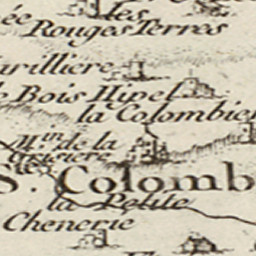 ée
les
Rouges Terres
arilliere
Bois Hipel
la Colombier
M.in de la
S. Colomb
la Petite
Chenerie